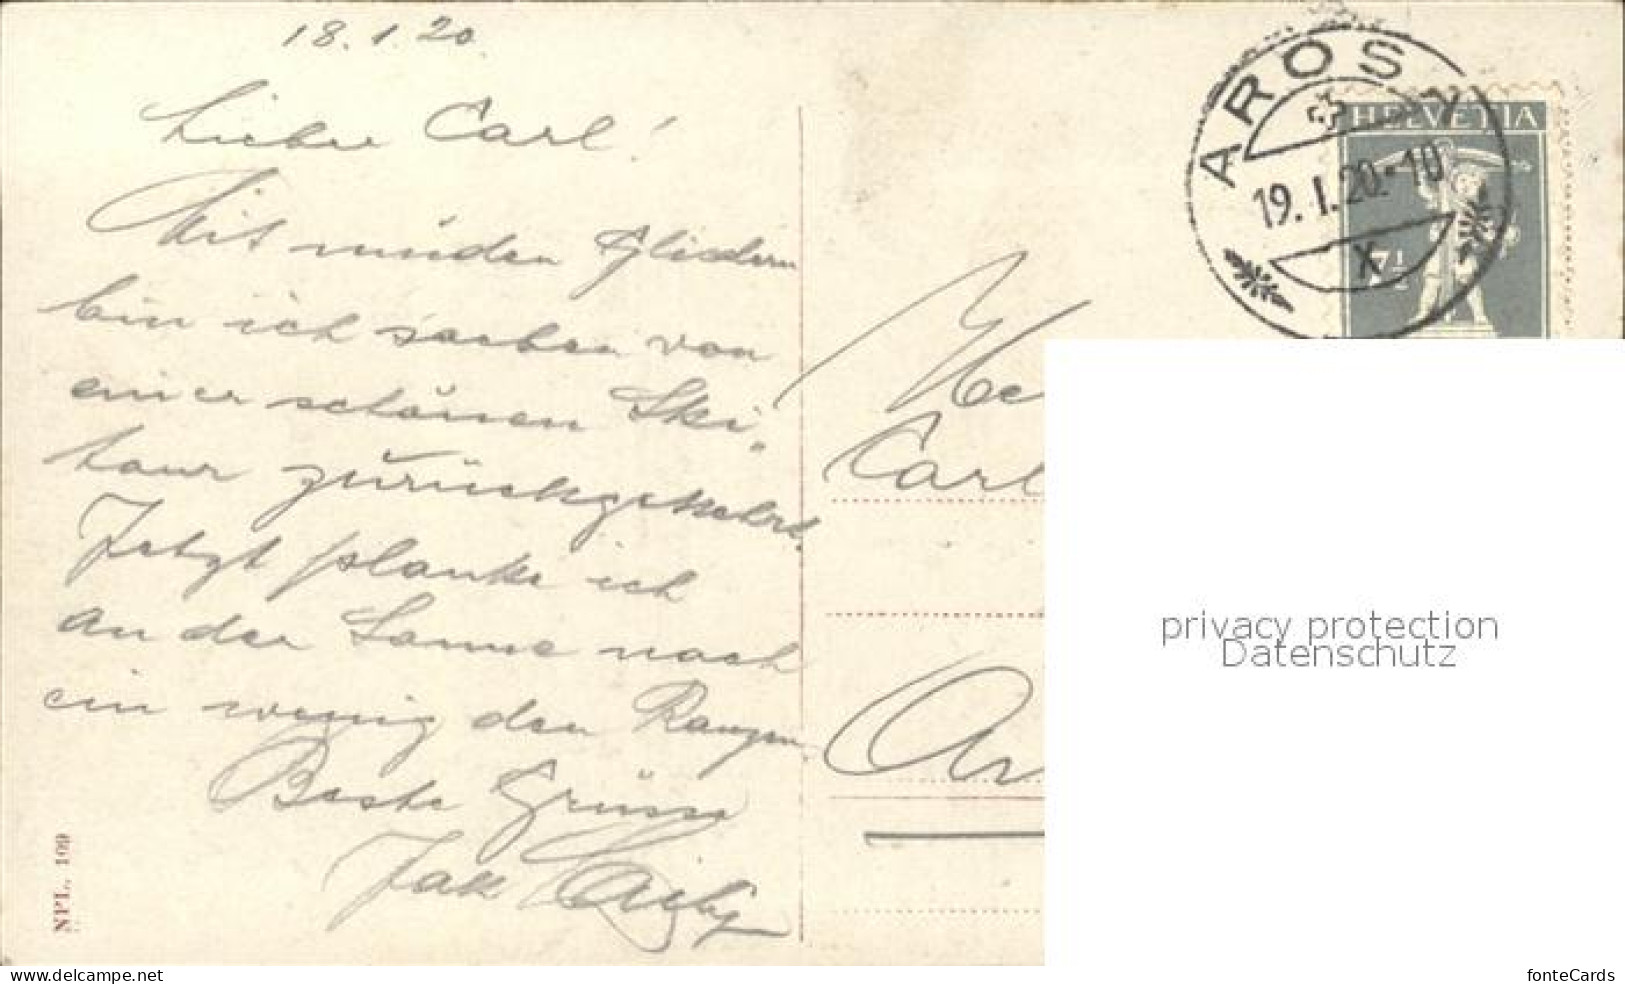 18.1.20.
Lieber Carl!
Mit müden Gliedern
bin ich soeben von
einer schönen Ski-
tour zurückgekehrt.
Jetzt planke ich
an der Sonne noch
ein wenig den Ranzen.
Beste Grüsse
Jak
NPL, 109
AROSA
19.I.20.-10
X
HELVETIA
7½
Carl
privacy protection
Datenschutz
www.delcampe.net
fonteCards